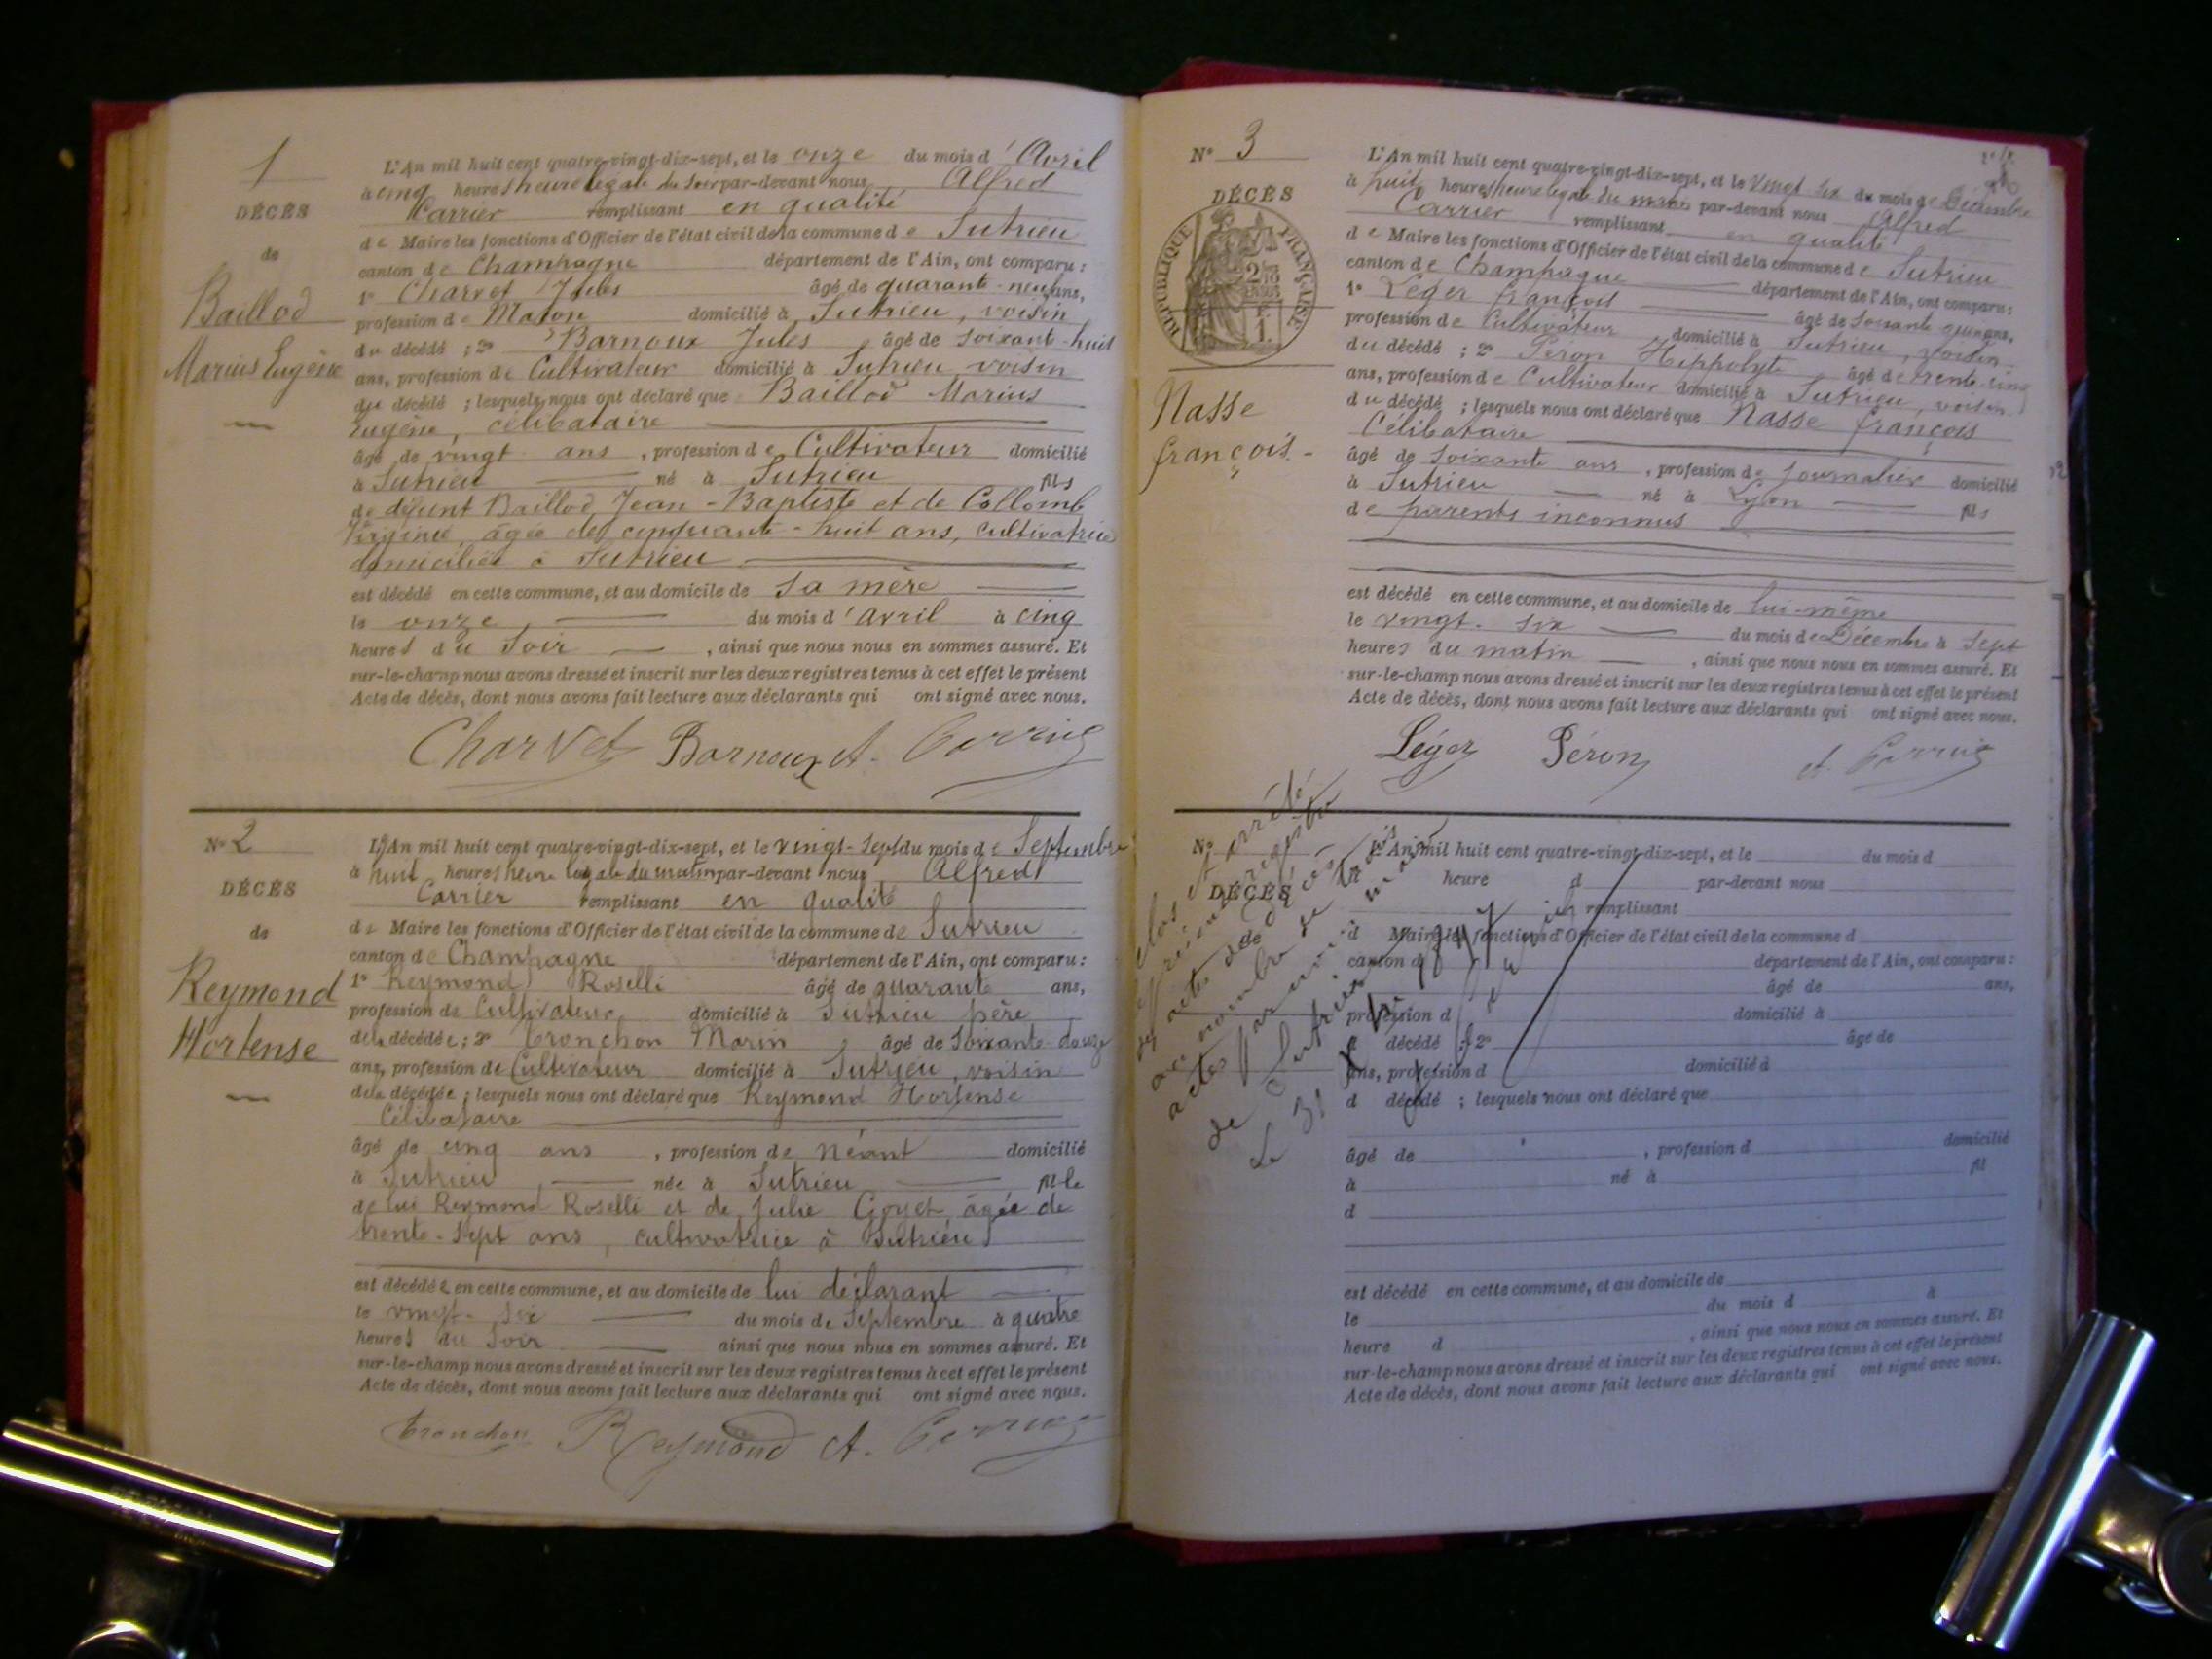 1
DÉCÈS
de
Baillod
Marius Eugène
L'An mil huit cent quatre-vingt-dix-sept, et le onze du mois d'Avril
à cinq heures heure légale du soir par-devant nous Alfred
Carrier remplissant en qualité
de Maire les fonctions d'Officier de l'état civil de la commune de Sutrieu
canton de Champagne département de l'Ain, ont comparu :
1° Charvet Jules âgé de quarante-neuf ans,
profession de Maçon domicilié à Sutrieu, voisin
du décédé ; 2° Barnoux Jules âgé de soixante-huit
ans, profession de Cultivateur domicilié à Sutrieu, voisin
du décédé ; lesquels nous ont déclaré que Baillod Marius
Eugène, célibataire
âgé de vingt ans, profession de Cultivateur domicilié
à Sutrieu né à Sutrieu fils
de défunt Baillod Jean-Baptiste et de Collomb
Virginie, âgée de cinquante-huit ans, cultivatrice
domiciliée à Sutrieu
est décédé en cette commune, et au domicile de sa mère
le onze du mois d'avril à cinq
heures du soir, ainsi que nous nous en sommes assuré. Et
sur-le-champ nous avons dressé et inscrit sur les deux registres tenus à cet effet le présent
Acte de décès, dont nous avons fait lecture aux déclarants qui ont signé avec nous.
Charvet Barnoux A. Carrier
N° 2
DÉCÈS
de
Reymond
Hortense
L'An mil huit cent quatre-vingt-dix-sept, et le vingt-sept du mois de Septembre
à huit heures heure légale du matin par-devant nous Alfred
Carrier remplissant en qualité
de Maire les fonctions d'Officier de l'état civil de la commune de Sutrieu
canton de Champagne département de l'Ain, ont comparu :
1° Reymond Roselli âgé de quarante ans,
profession de Cultivateur domicilié à Sutrieu père
de la décédée ; 2° Tronchon Marin âgé de soixante-douze
ans, profession de Cultivateur domicilié à Sutrieu, voisin
de la décédée ; lesquels nous ont déclaré que Reymond Hortense
Célibataire
âgé de cinq ans, profession de Néant domicilié
à Sutrieu née à Sutrieu fille
de lui Reymond Roselli et de Julie Goyet, âgée de
trente-sept ans, cultivatrice à Sutrieu
est décédée en cette commune, et au domicile de lui déclarant
le vingt-six du mois de Septembre à quatre
heures du soir ainsi que nous nous en sommes assuré. Et
sur-le-champ nous avons dressé et inscrit sur les deux registres tenus à cet effet le présent
Acte de décès, dont nous avons fait lecture aux déclarants qui ont signé avec nous.
Tronchon Reymond A. Carrier
N° 3
DÉCÈS
RÉPUBLIQUE FRANÇAISE
Nasse
François.
L'An mil huit cent quatre-vingt-dix-sept, et le vingt-six du mois de Décembre
à huit heures heure légale du matin par-devant nous Alfred
Carrier remplissant en qualité
de Maire les fonctions d'Officier de l'état civil de la commune de Sutrieu
canton de Champagne département de l'Ain, ont comparu :
1° Léger François âgé de soixante quinze ans,
profession de Cultivateur domicilié à Sutrieu, voisin
du décédé ; 2° Péron Hippolyte âgé de trente-cinq
ans, profession de Cultivateur domicilié à Sutrieu, voisin
du décédé ; lesquels nous ont déclaré que Nasse François
Célibataire
âgé de Soixante ans, profession de Journalier domicilié
à Sutrieu né à Lyon fils
de parents inconnus
est décédé en cette commune, et au domicile de lui-même
le vingt-six du mois de Décembre à sept
heures du matin, ainsi que nous nous en sommes assuré. Et
sur-le-champ nous avons dressé et inscrit sur les deux registres tenus à cet effet le présent
Acte de décès, dont nous avons fait lecture aux déclarants qui ont signé avec nous.
Léger Péron A. Carrier
Clos et arrêté
le présent registre
des actes de décès
au nombre de trois
actes par nous maire
de Sutrieu
Le 31 1897
N°
DÉCÈS
de
L'An mil huit cent quatre-vingt-dix-sept, et le du mois d
heure d par-devant nous
remplissant
d Maire les fonctions d'Officier de l'état civil de la commune d
canton d département de l'Ain, ont comparu :
âgé de ans,
profession d domicilié à
d décédé ; 2° âgé de
ans, profession d domicilié à
d décédé ; lesquels nous ont déclaré que
âgé de , profession d domicilié
à né à fil
d
est décédé en cette commune, et au domicile de
le du mois d à
heure d , ainsi que nous nous en sommes assuré. Et
sur-le-champ nous avons dressé et inscrit sur les deux registres tenus à cet effet le présent
Acte de décès, dont nous avons fait lecture aux déclarants qui ont signé avec nous.